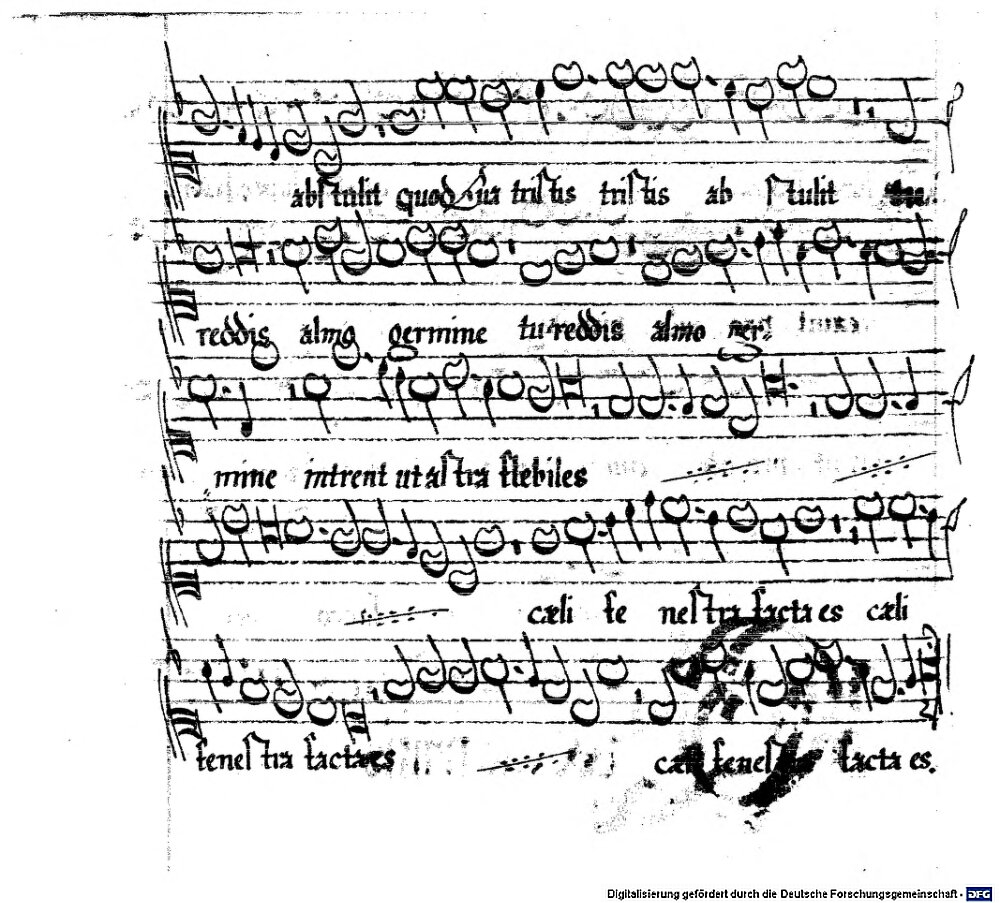 abstulit quod Eua tristis tristis ab stulit
reddis almo germine tu reddis almo ger
mine intrent ut astra flebiles
cæli fe nestra facta es cæli
fenestra facta es cæli fenestra facta es.
Digitalisierung gefördert durch die Deutsche Forschungsgemeinschaft - DFG